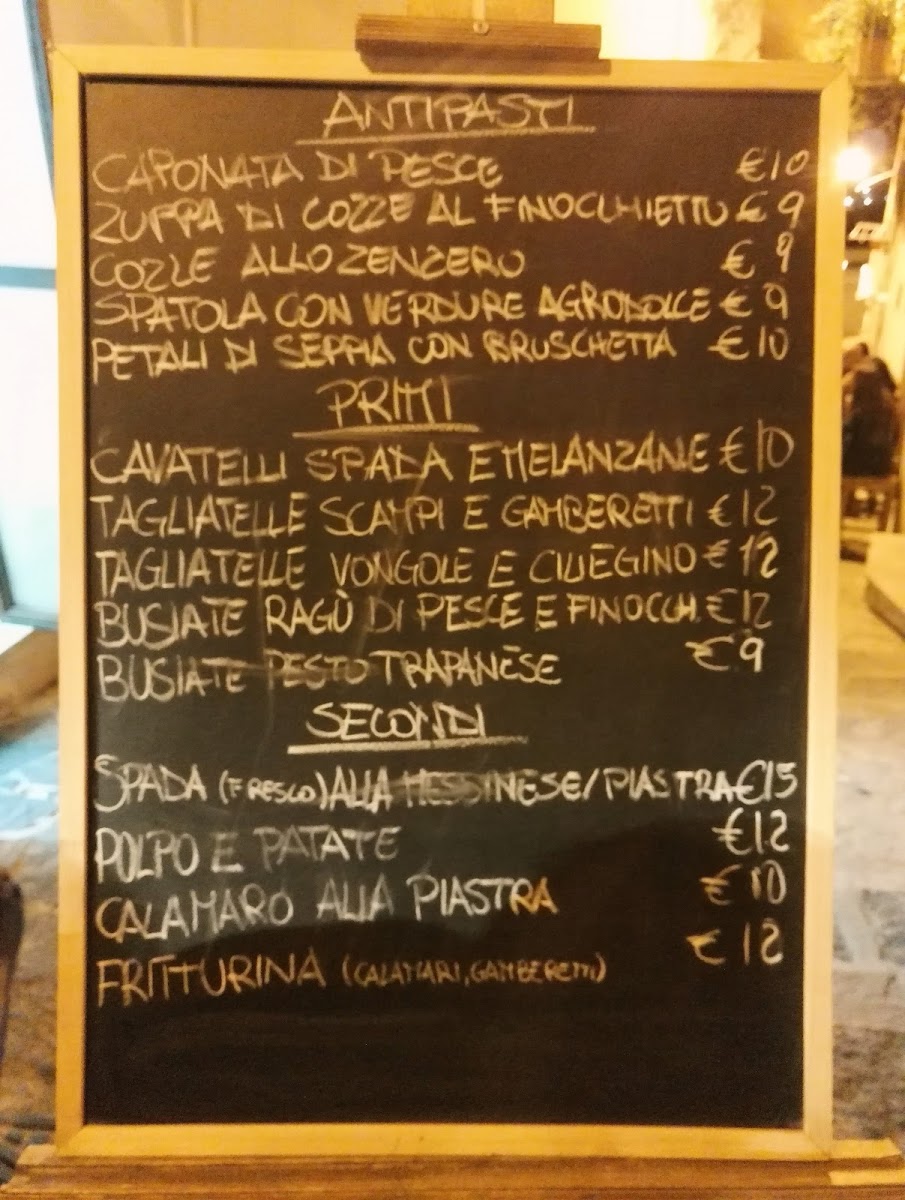 ANTIPASTI
CAPONATA DI PESCE €10
ZUPPA DI COZZE AL FINOCCHIETTO € 9
COZZE ALLO ZENZERO € 9
SPATOLA CON VERDURE AGRODOLCE € 9
PETALI DI SEPPIA CON BRUSCHETTA € 10
PRIMI
CAVATELLI SPADA E MELANZANE €10
TAGLIATELLE SCAMPI E GAMBERETTI €12
TAGLIATELLE VONGOLE E CILIEGINO €12
BUSIATE RAGÙ DI PESCE E FINOCCHI €12
BUSIATE PESTO TRAPANESE €9
SECONDI
SPADA (FRESCO) ALLA MESSINESE/PIASTRA €15
POLPO E PATATE €12
CALAMARO ALLA PIASTRA € 10
FRITTURINA (CALAMARI, GAMBERETTI) € 12